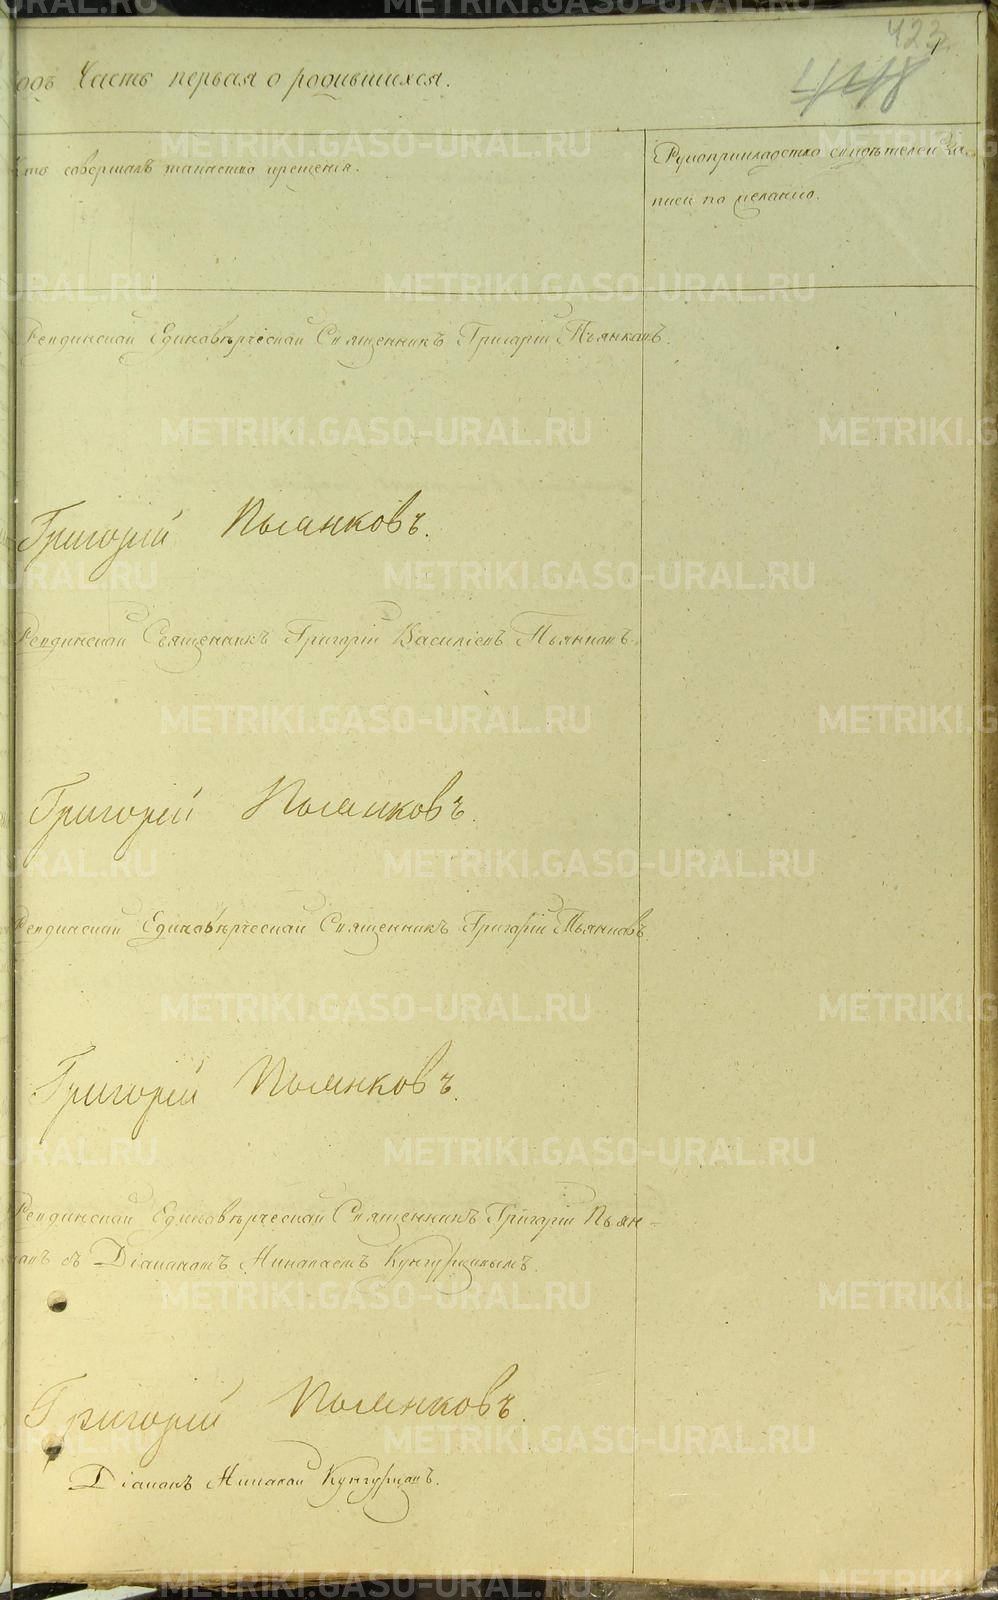 423.
448
одъ Часть первая о родившихся.
Кто совершалъ таинство крещенія.
Рукоприкладство свидѣтелей за-
писи по желанію.
Ревдинской Единовѣрческой Священникъ Григорій Пьянковъ.
Григорій Пьянковъ.
Ревдинской Священникъ Григорій Василіевъ Пьянковъ.
Григорій Пьянковъ.
Ревдинской Единовѣрческой Священникъ Григорій Пьянковъ.
Григорій Пьянковъ.
Ревдинской Единовѣрческой Священникъ Григорій Пьян-
ковъ съ Діакономъ Кунгурцовымъ.
Григорій Пьянковъ.
Діаконъ Николай Кунгурцовъ.
METRIKI.GASO-URAL.RU